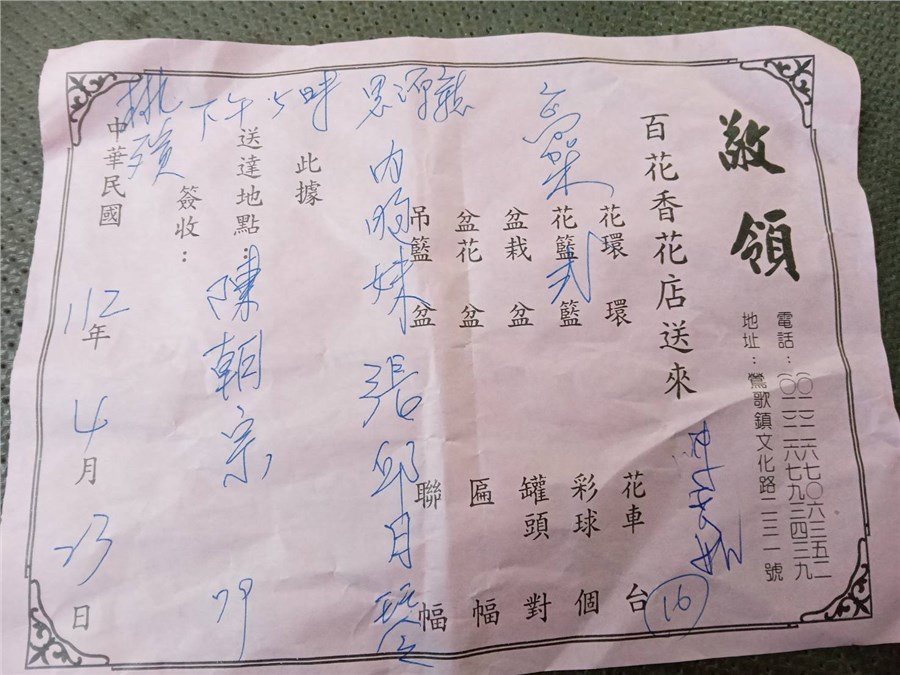 敬領
電話：(〇二)二六七〇六三五二
(〇二)二六七九三四三九
地址：鶯歌鎮文化路二三一號
百花香花店送來
16
花環 環
花車 台
高架
花籃 籃
彩球 個
盆栽 盆
罐頭 對
盆花 盆
匾 幅
吊籃 盆
聯 幅
內
妹 張邱月
此據
下午5時
送達地點：
陳朝宗
簽收：
桃
中華民國 112年4月23日